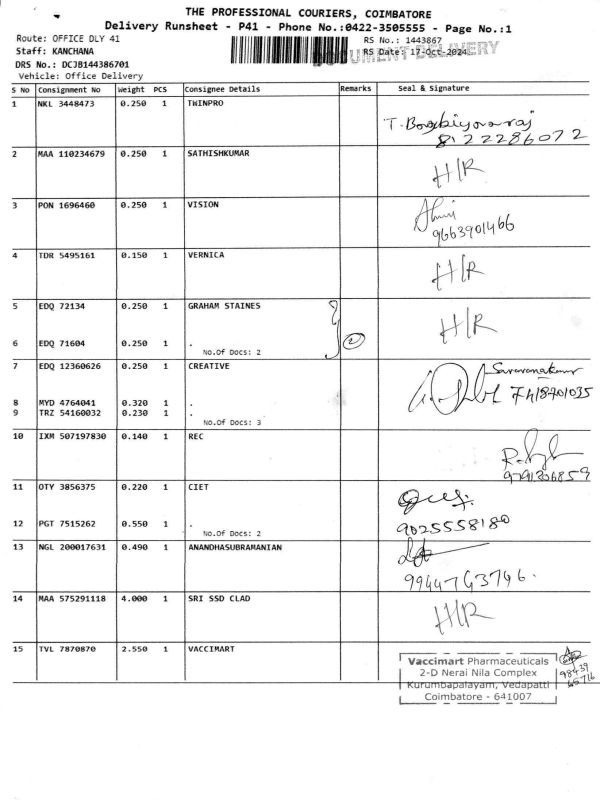 THE PROFESSIONAL COURIERS, COIMBATORE
Delivery Runsheet - P41 - Phone No.:0422-3505555 - Page No.:1
Route: OFFICE DLY 41
RS No.: 1443867
Staff: KANCHANA
RS Date: 17-Oct-2024
DOCUMENT DELIVERY
DRS No.: DCJB144386701
Vehicle: Office Delivery
S No Consignment No Weight PCS Consignee Details Remarks Seal & Signature
1 NKL 3448473 0.250 1 TWINPRO
8122286072
2 MAA 110234679 0.250 1 SATHISHKUMAR H/R
3 PON 1696460 0.250 1 VISION
9663901466
4 TDR 5495161 0.150 1 VERNICA H/R
5 EDQ 72134 0.250 1 GRAHAM STAINES H/R
6 EDQ 71604 0.250 1 . 2
No.Of Docs: 2
7 EDQ 12360626 0.250 1 CREATIVE Saravanakumar
7418701035
8 MYD 4764041 0.320 1 .
9 TRZ 54160032 0.230 1 .
No.Of Docs: 3
10 IXM 507197830 0.140 1 REC
9791306859
11 OTY 3856375 0.220 1 CIET
12 PGT 7515262 0.550 1 . 9025558180
No.Of Docs: 2
13 NGL 200017631 0.490 1 ANANDHASUBRAMANIAN
9944743746.
14 MAA 575291118 4.000 1 SRI SSD CLAD H/R
15 TVL 7870870 2.550 1 VACCIMART
Vaccimart Pharmaceuticals
2-D Nerai Nila Complex
Kurumbapalayam, Vedapatti
Coimbatore - 641007
98439
65716